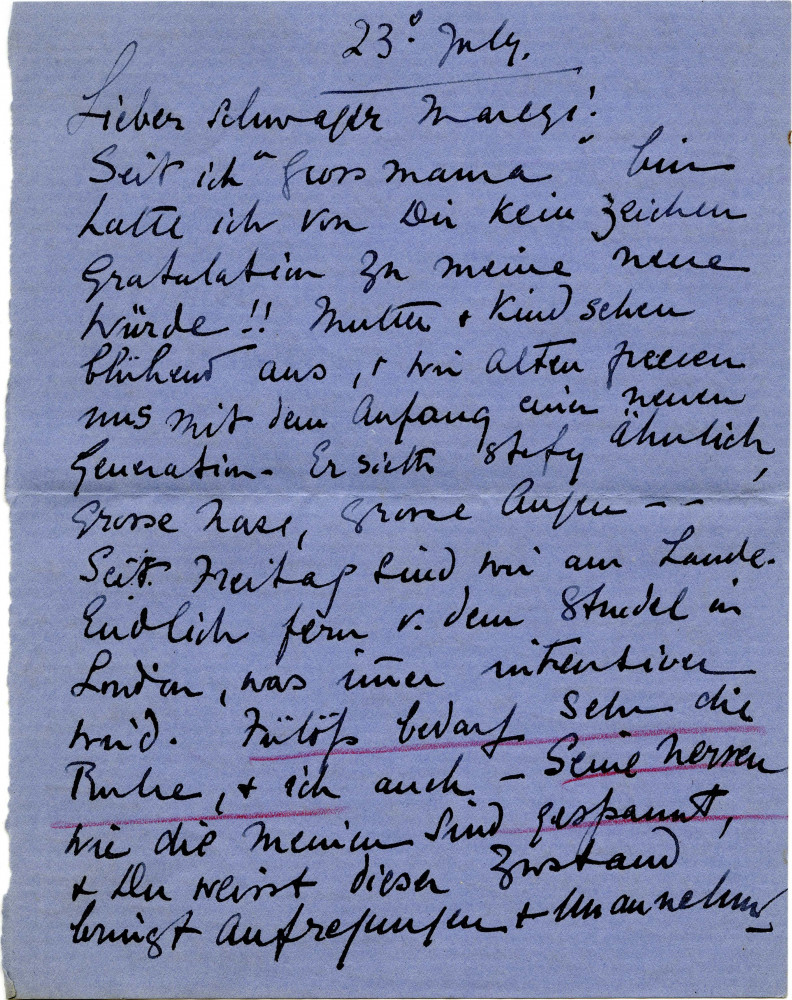 23º July.
Lieber Schwager Marczi!
Seit ich "Grossmama" bin
hatte ich von Dir kein Zeichen
Gratulation zu meine neue
Würde!! Mutter + Kind sehen
blühend aus, + wir Alten freuen
uns mit dem Anfang einer neuen
Generation - Er sieht Stefy ähnlich,
grosse Nase, grosse Augen - -
Seit Freitag sind wir am Lande.
Endlich fern v. dem Strudel in
London, was imer intensiver
wird. Fülöp bedarf sehr die
Ruhe, + ich auch - Seine Nerven
wie die meinen sind gespannt,
+ Du weisst dieser Zustand
bringt Aufregungen + Unannehm